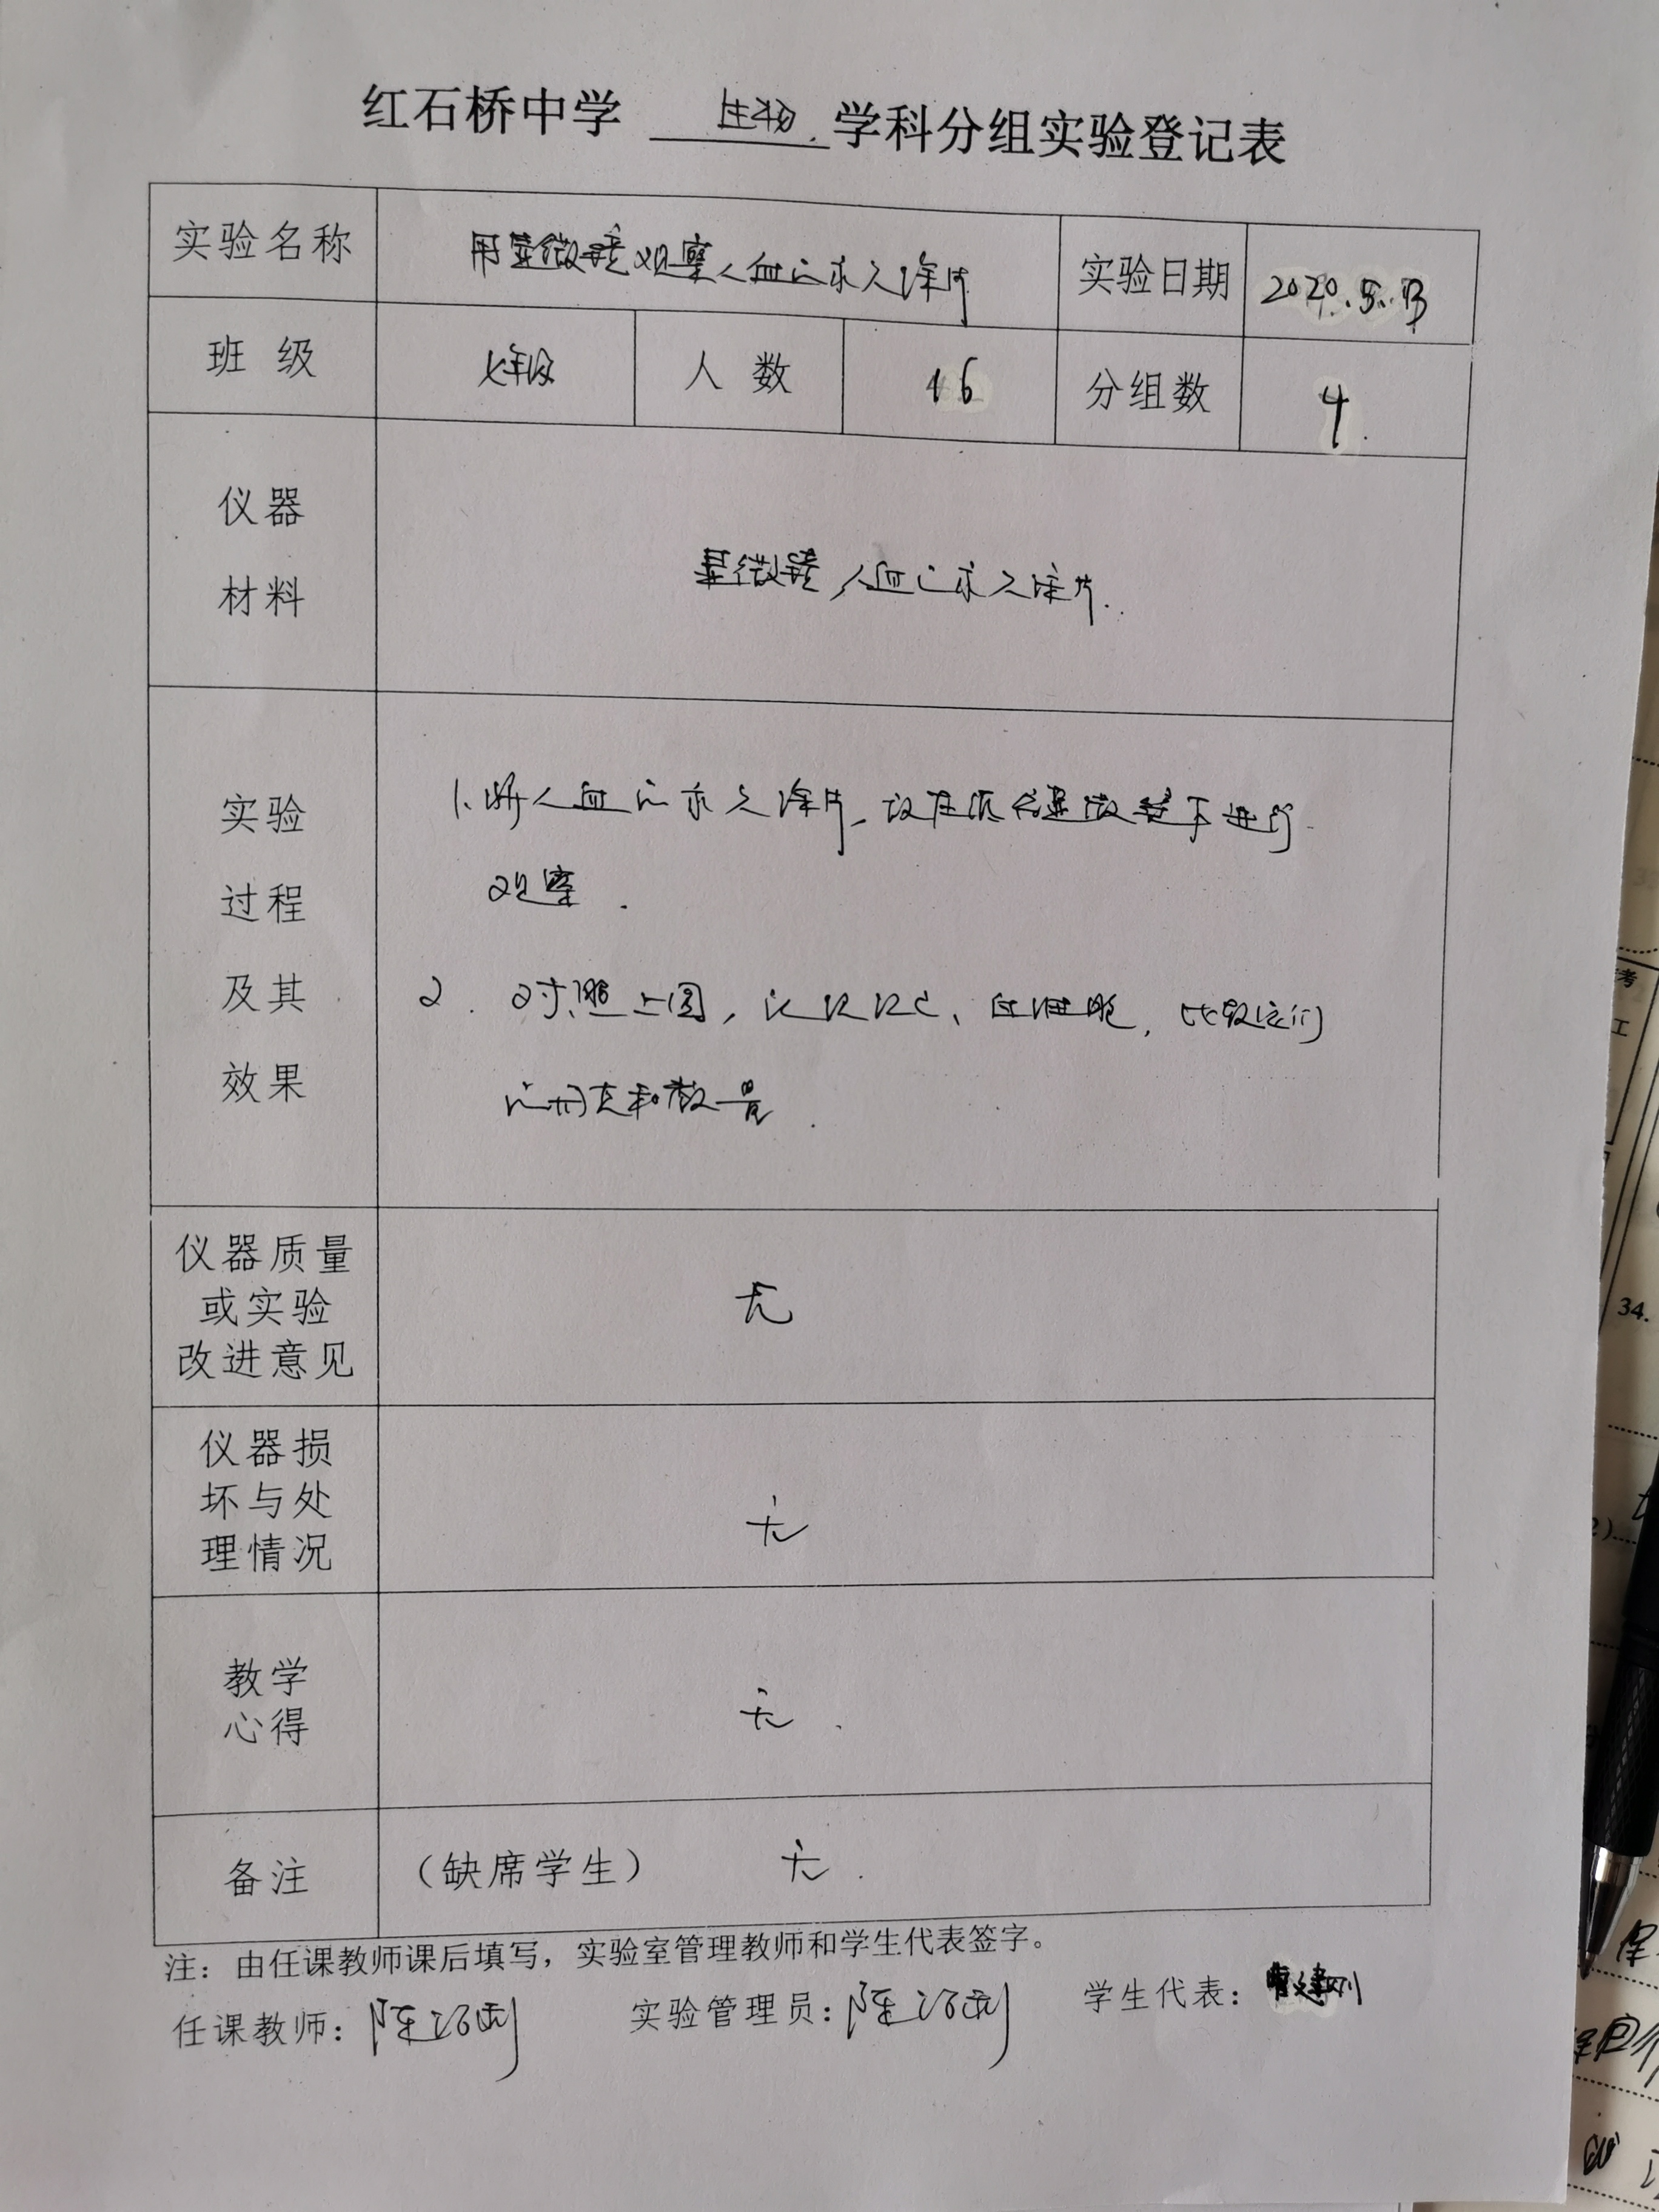 红石桥中学 生物 学科分组实验登记表
实验名称 用显微镜观察人血的永久涂片 实验日期 2020.5.13
班 级 七年级 人 数 16 分组数 4
仪器
材料
显微镜,人血的永久涂片.
实验
过程
及其
效果
1.将人血的永久涂片,放在低倍显微镜下进行
观察.
2. 对照上图,认识红、白细胞,比较它们
的形态和数量.
仪器质量
或实验
改进意见
无
仪器损
坏与处
理情况
无
教学
心得
无.
备注 (缺席学生) 无.
注:由任课教师课后填写,实验室管理教师和学生代表签字。
任课教师: 实验管理员: 学生代表:
34.